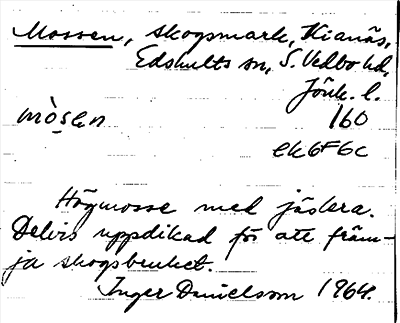 Mossen, skogsmark, Kianäs,
Edshults sn, S. Vedbo hd,
Jönk. l.
mòsen 160
ek6F6c
Högmosse med jäslera.
Delvis uppdikad för att främ-
ja skogsbruket.
Inger Danielsson 1964.